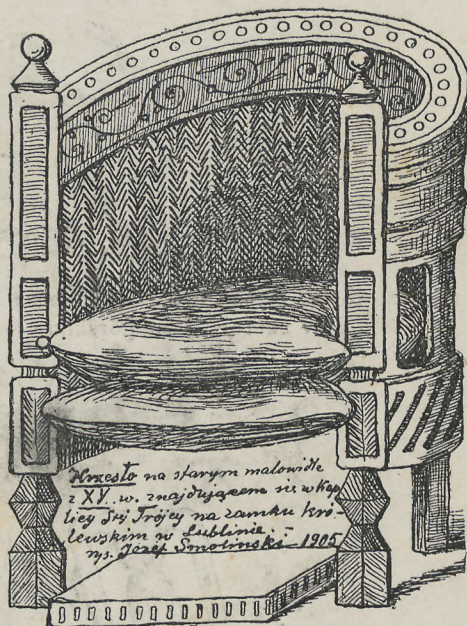 Krzesło na starym malowidle
z XV. w. znajdującem się w Kap
licy Śtej Trójcy na zamku kró-
lewskim w Lublinie.
rys. Józef Smoliński 1905